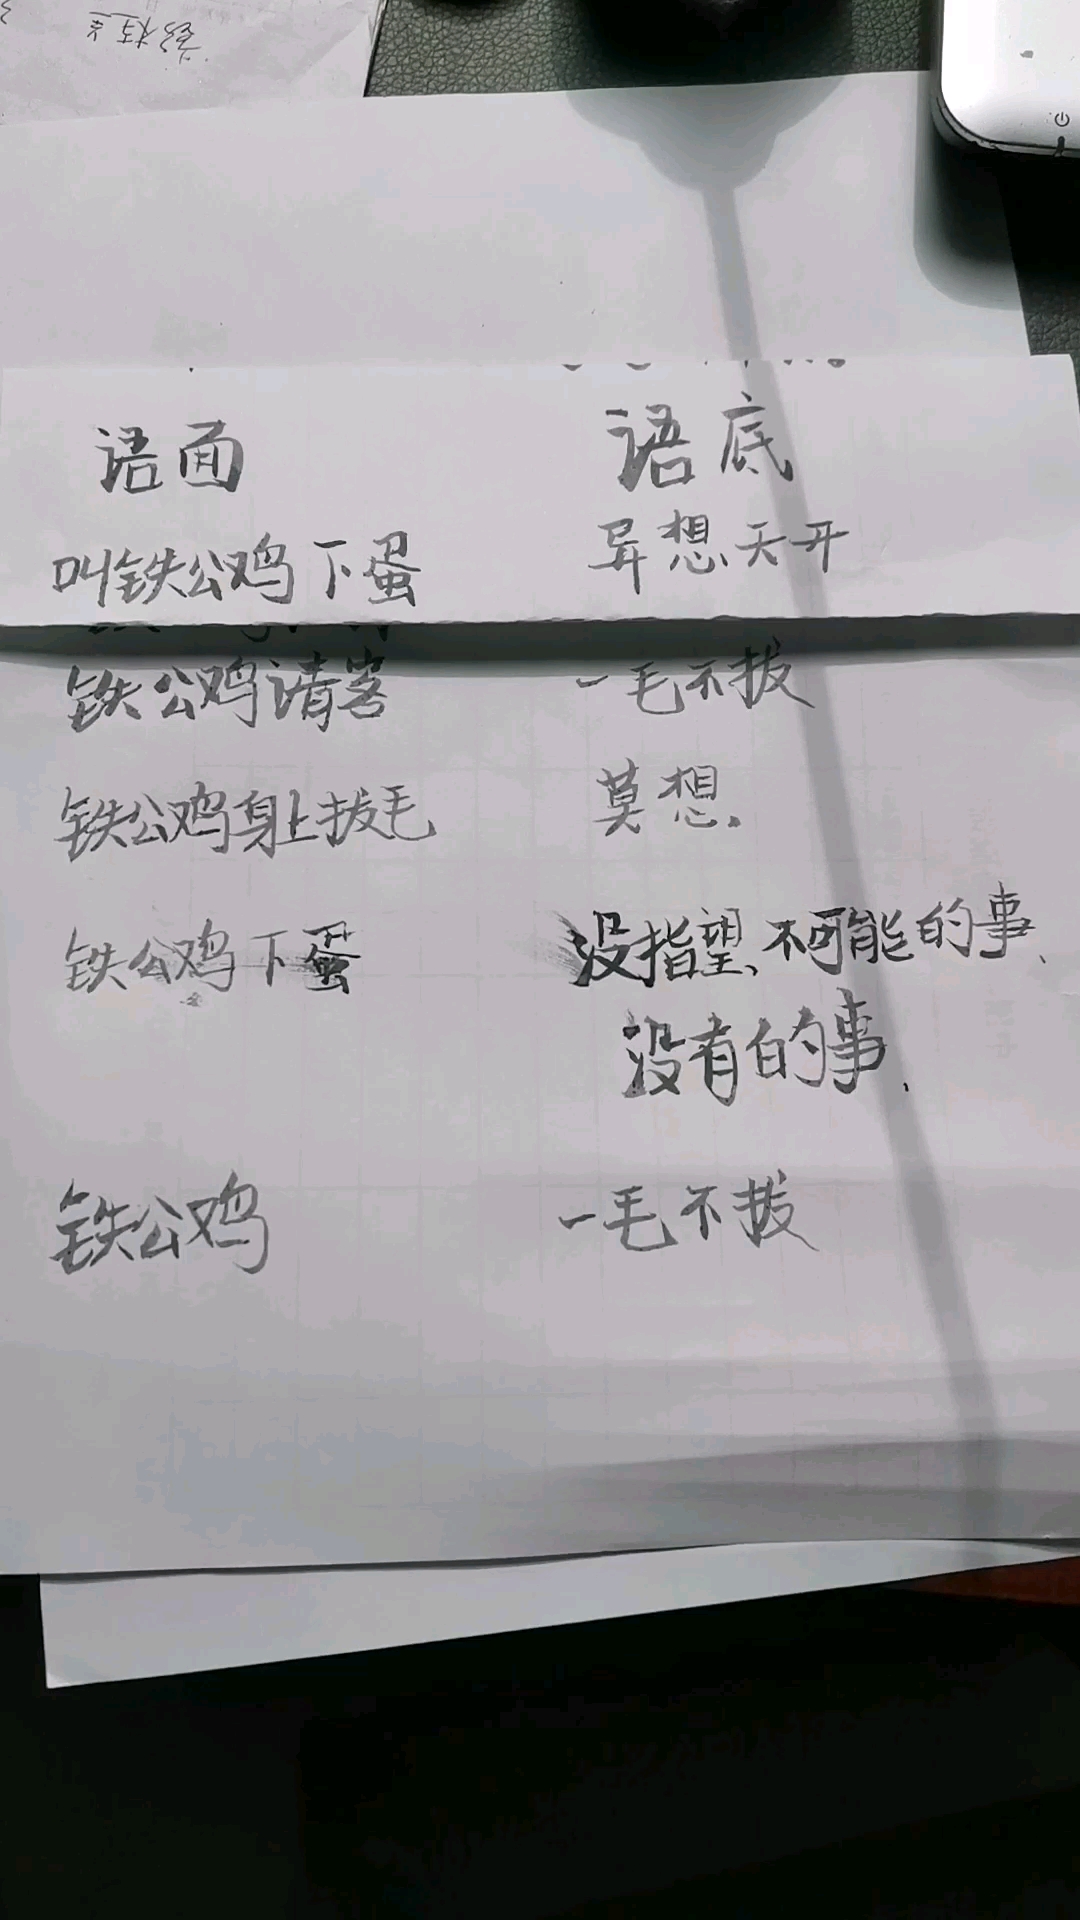 语面 语底
叫铁公鸡下蛋 异想天开
铁公鸡请客 一毛不拔
铁公鸡身上拔毛 莫想.
铁公鸡下蛋 没指望、不可能的事、
没有的事.
铁公鸡 一毛不拔